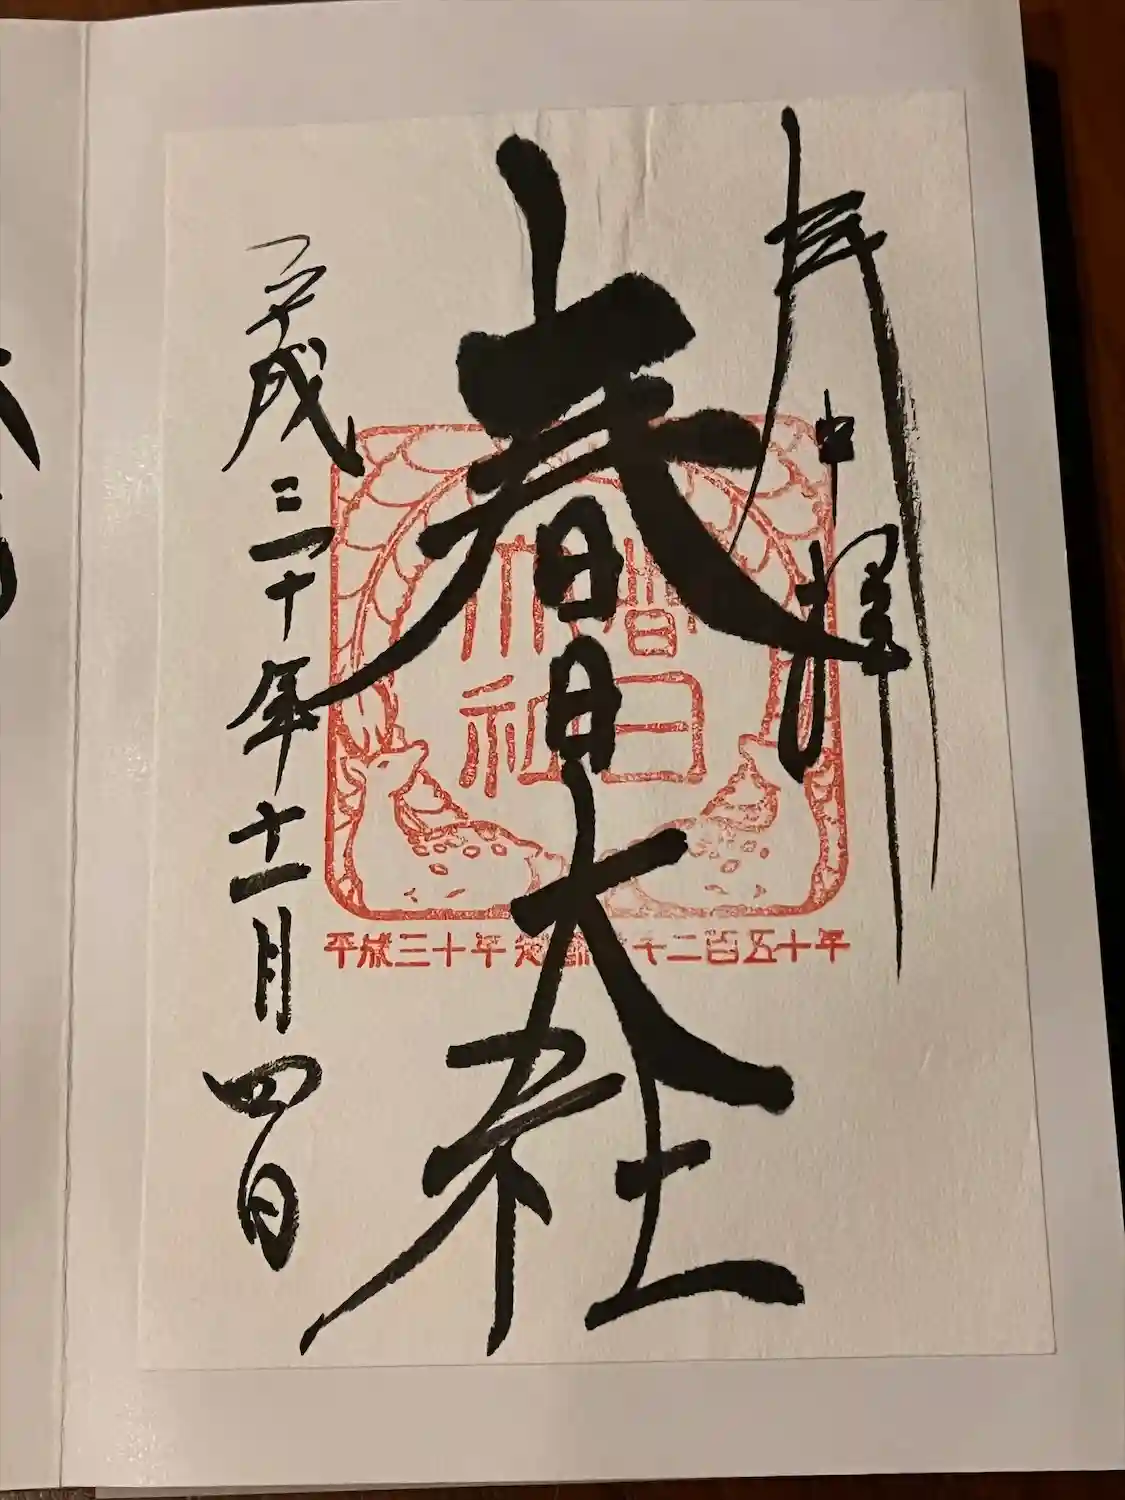 奉拝
春日大社
平成三十年十一月四日
春日
大社
平成三十年 千二百五十年